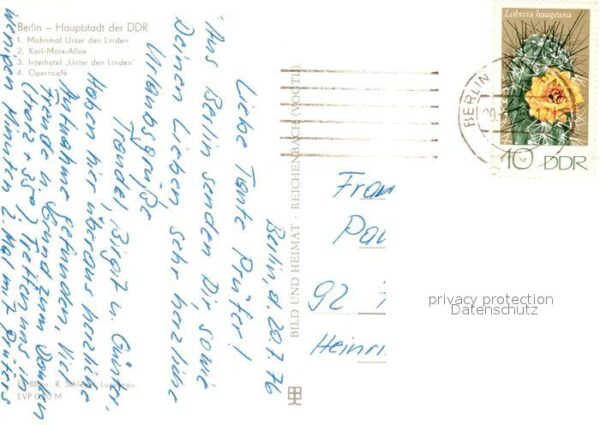 Berlin – Hauptstadt der DDR
1. Mahnmal Unter den Linden
2. Karl-Marx-Allee
3. Interhotel „Unter den Linden"
4. Operncafé
Berlin, d. 20.7.76
Liebe Tante Prüfer!
Aus Berlin senden Dir sowie
Deinen Lieben sehr herzliche
Urlaubsgrüße
Traudel, Birgit u. Günter.
Haben hier überaus herzliche
Aufnahme gefunden. Viel
Freude u. Grund zum Danken
(trotz + 35°). Treffen uns in
wenigen Minuten 2. Mal mit Prüfers
BILD UND HEIMAT · REICHENBACH (VOGTL)
R.
EVP
M
Lobivia haageana
10 DDR
BERLIN
Frau
92
Heinri
privacy protection
Datenschutz